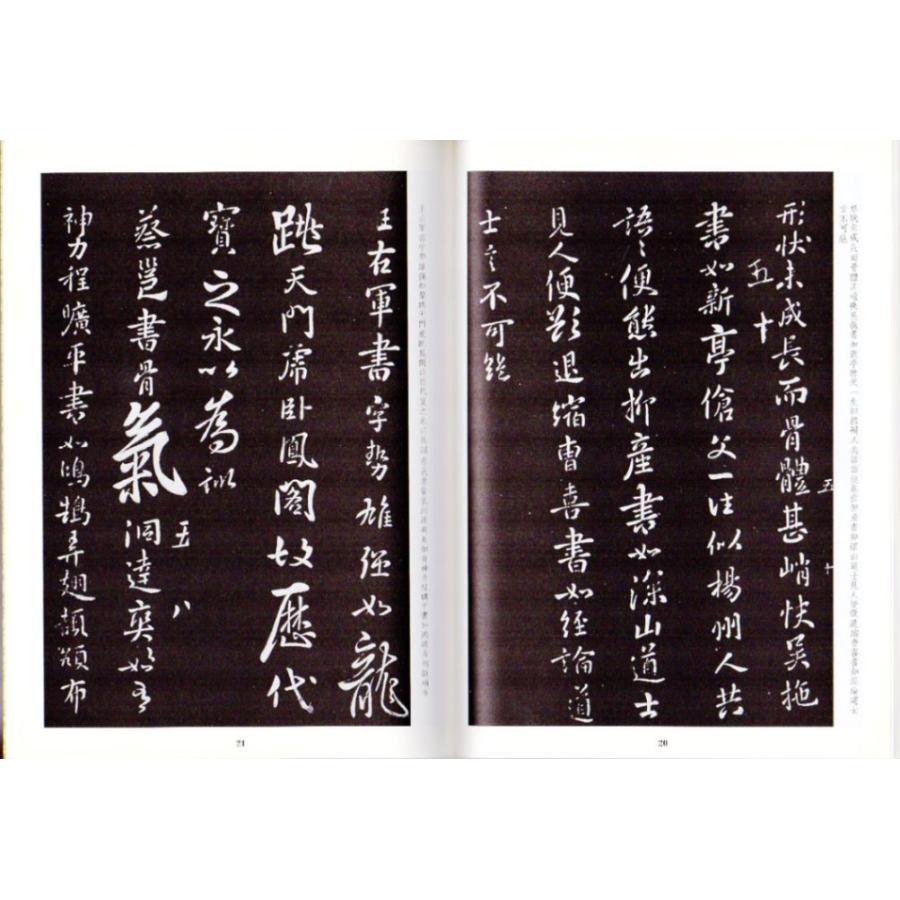 形状未成長而骨體甚峭快吴拖
五十
五十
書如新亭傖父一往似楊州人共
語語便態出柳産書如深山道士
見人便欲退縮曹喜書如經論道
士言不可絶
20
王右軍書字勢雄强如龍
跳天門虎卧鳳閣故歷代
寶之永以為訓
蔡邕書骨氣洞達爽爽為
五八
神力程曠平書如鴻鵠弄翅頡頏布
21